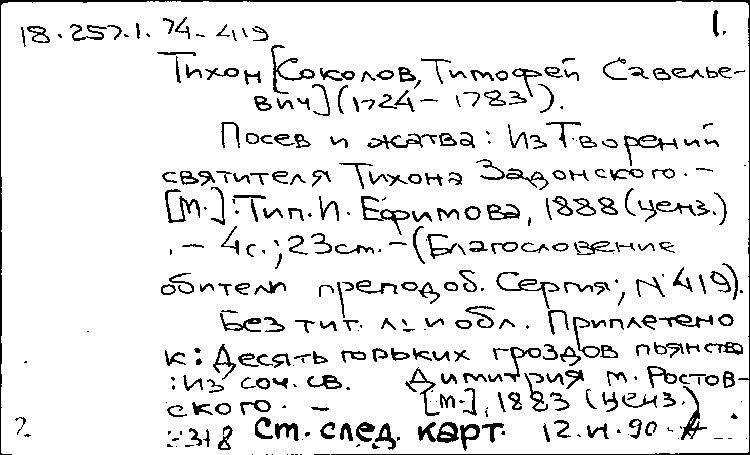 18.257.1.74-419 1.
Тихон [Соколов, Тимофей Савелье-
вич] (1724 - 1783).
Посев и жатва: Из Творений
святителя Тихона Задонского. -
[М.]: Тип. И. Ефимова, 1888 (ценз.)
. - 4с.; 23см. - (Благословение
обители преподоб. Сергия; N 419).
Без тит. л. и обл. Приплетено
к: Десять горьких гроздов пьянства
: Из соч. св. Димитрия м. Ростов-
ского. - [М.], 1883 (ценз.)
Ст. след. карт. 12.VI.90